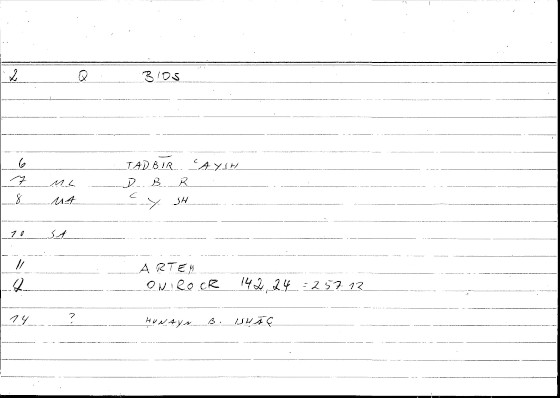 2 Q BIOS
6 TADBĪR ʿAYSH
7 ML D B R
8 MA ʿ Y SH
10 SA
11 ARTEM
12 ONIROCR 142,24 = 257 12
14 ? ḤUNAYN B. ISḤĀQ